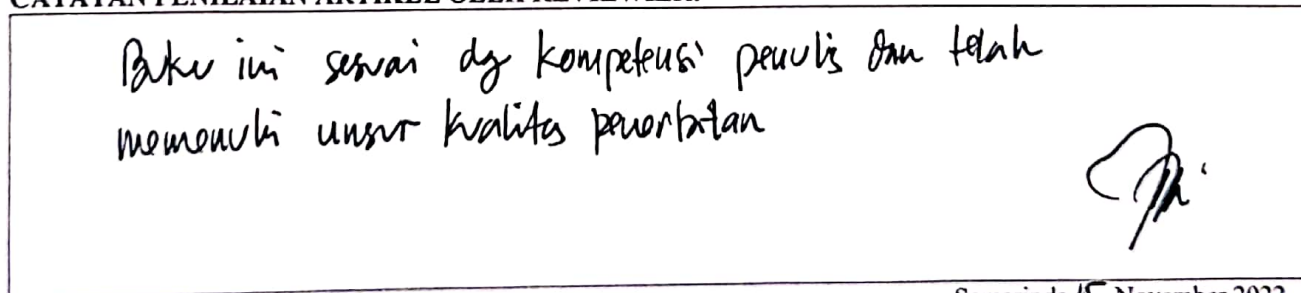 CATATAN PENILAIAN ARTIKEL OLEH REVIEWER:
Buku ini sesuai dg kompetensi penulis dan telah
memenuhi unsur kualitas penerbitan
Samarinda 15 November 2022